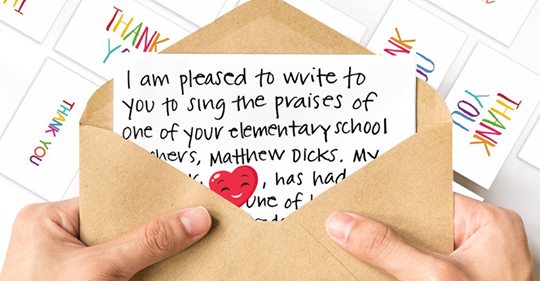 THANK
YOU
THANK
YOU
THANK
YOU
I am pleased to write to
you to sing the praises of
one of your elementary school
hers, Matthew Dicks. My
, has had
one of